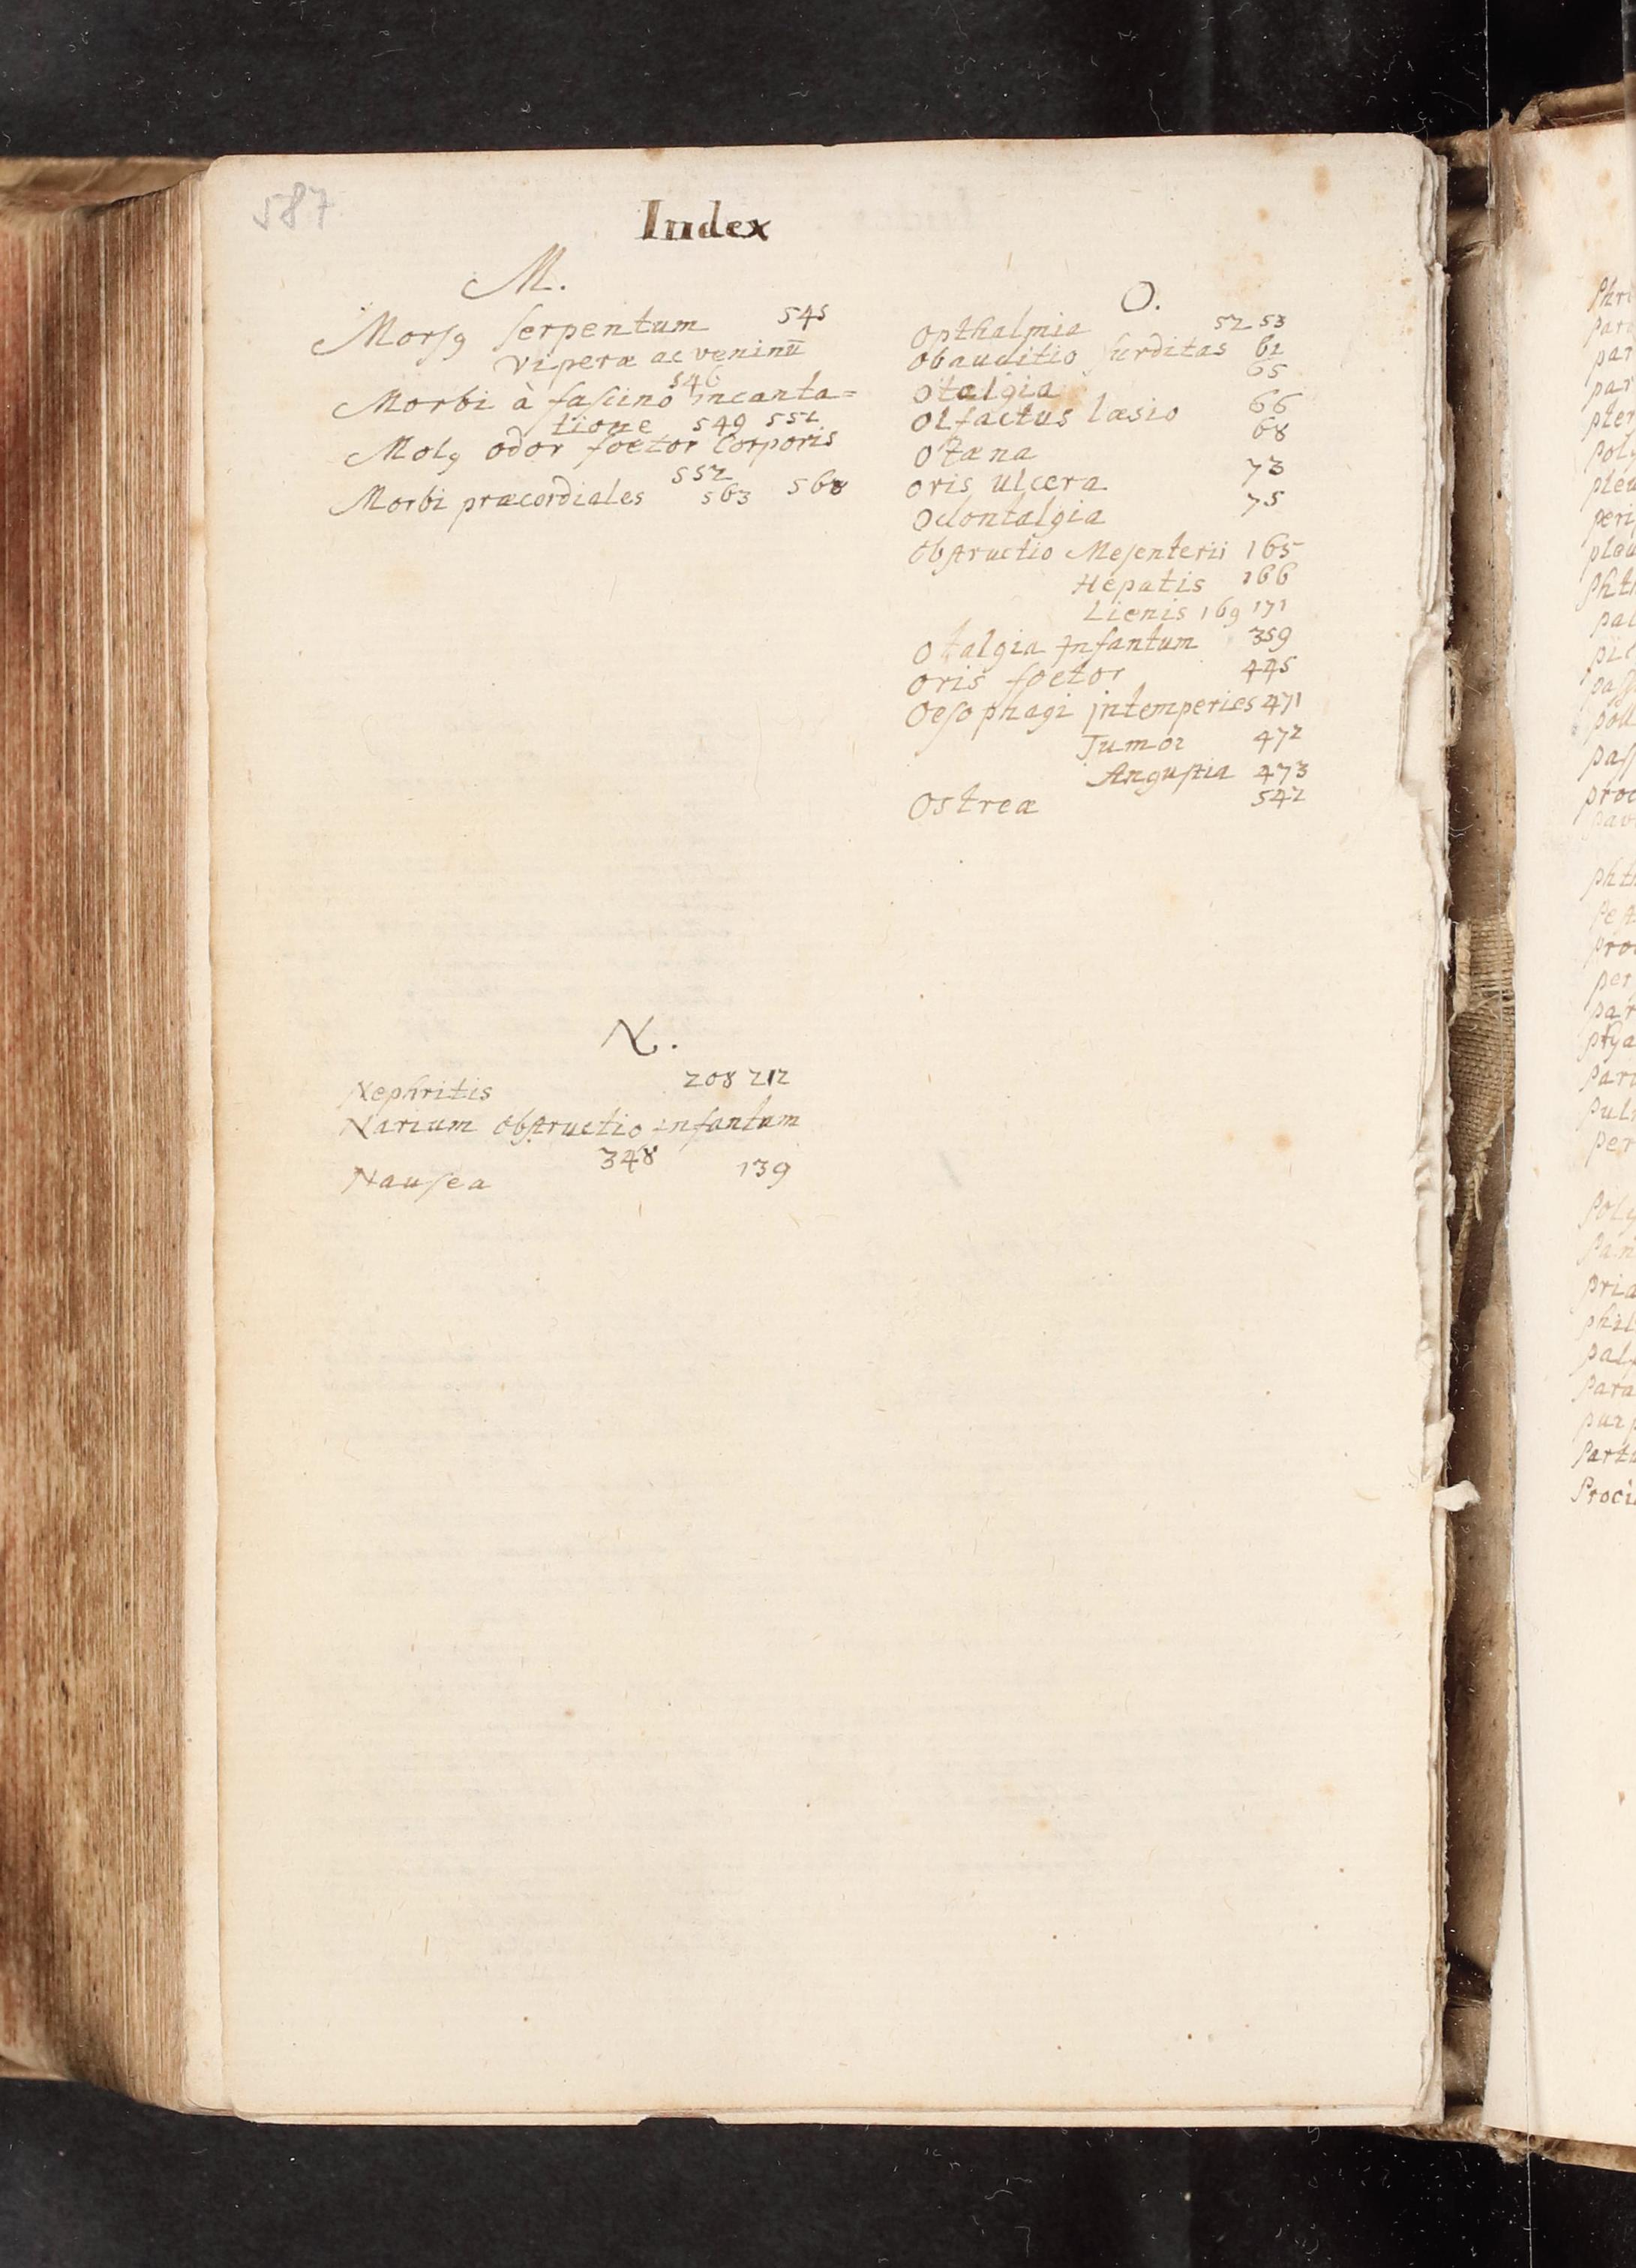 587
Index
M.
Morsꝯ Serpentum 545
Viperæ ac veninū
546
Morbi à fascino incanta=
tione 549 551
Molꝯ odor foetor Corporis
552
Morbi præcordiales 563 568
N.
Nephritis 208 212
Narium obstructio infantum
348
Nausea 139
O.
Opthalmia 52 53
Obauditio Surditas 61
Otalgia 65
Olfactus læsio 66
Otæna 68
Oris ulcera 73
Odontalgia 75
Obstructio Mesenterii 165
Hepatis 166
Lienis 169 171
Otalgia Infantum 359
Oris foetor 445
Oesophagi intemperies 471
Tumor 472
Angustia 473
Ostreæ 542